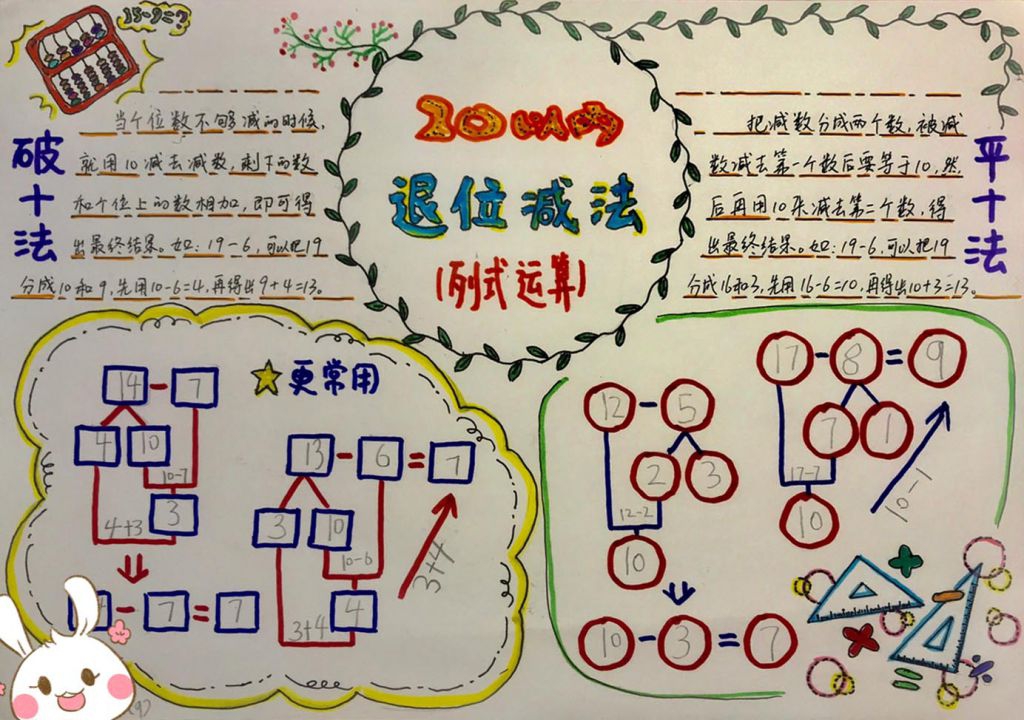 15-9=?
20以内
退位减法
(列式运算)
破十法
当个位数不够减的时候,
就用10减去减数,剩下的数
和个位上的数相加,即可得
出最终结果。如:19-6,可以把19
分成10和9,先用10-6=4,再得出9+4=13。
平十法
把减数分成两个数,被减
数减去第一个数后要等于10,然
后再用10来减去第二个数,得
出最终结果。如:19-6,可以把19
分成16和3,先用16-6=10,再得出10+3=13。
更常用
14-7
4 10
10-7
3
4+3
4-7=7
13-6=7
3 10
10-6
4
3+4
3+4
12-5
2 3
12-2
10
10-3=7
17-8=9
7 1
17-7
10
10-1